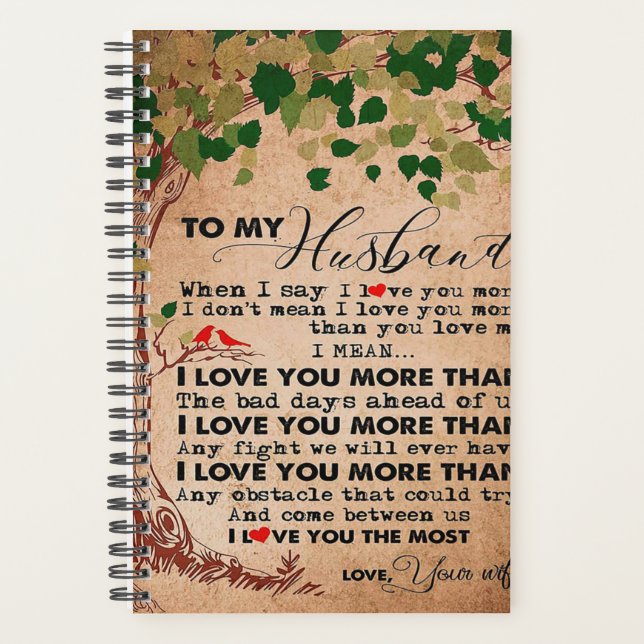 TO MY Husband
When I say I love you mor
I don't mean I love you mor
than you love m
I MEAN...
I LOVE YOU MORE THAN
The bad days ahead of u
I LOVE YOU MORE THAN
Any fight we will ever hav
I LOVE YOU MORE THAN
Any obstacle that could try
And come between us
I LOVE YOU THE MOST
LOVE, Your wif